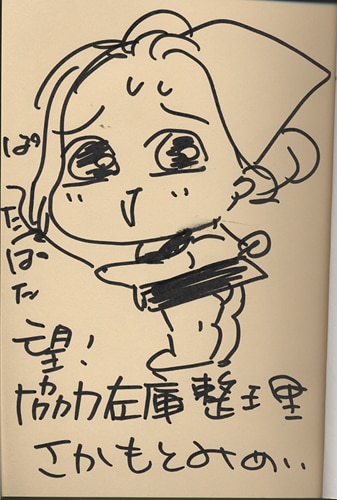 ぱたぱた
望!
協力在庫整理
さかもとみめい